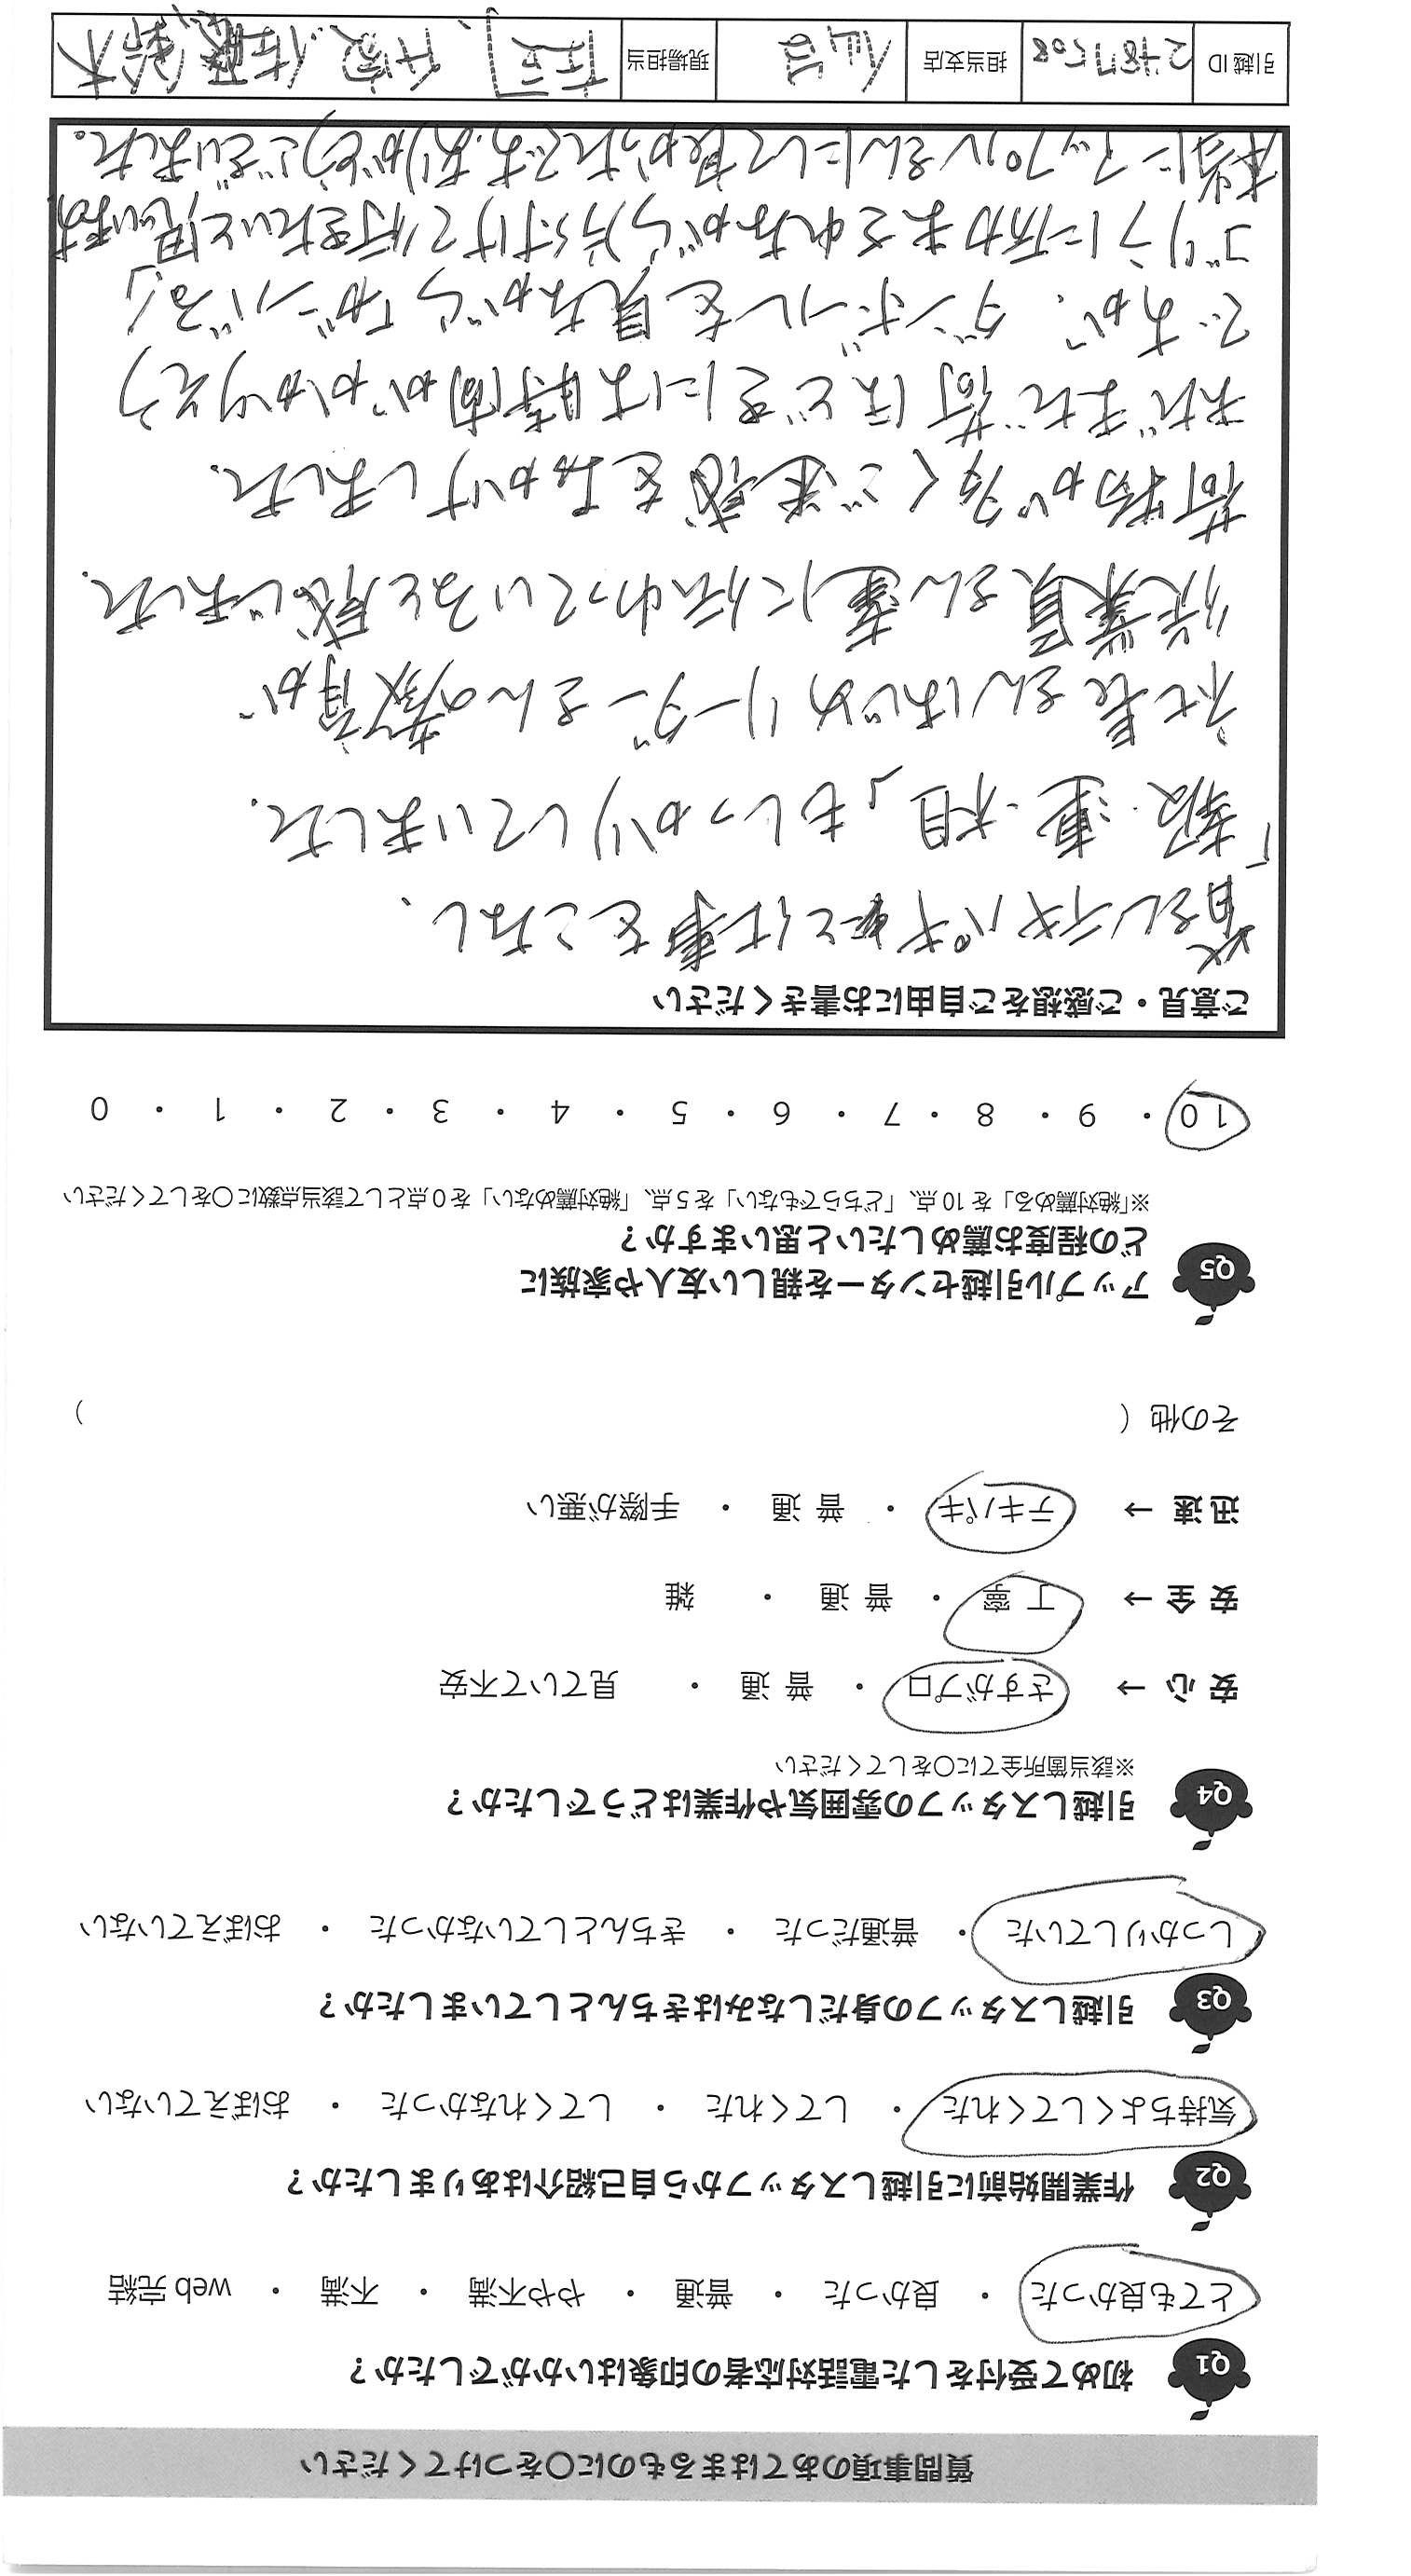 質問事項のあてはまるものに○をつけてください
Q1 初めて受付をした電話対応者の印象はいかがでしたか？
とても良かった ・ 良かった ・ 普通 ・ やや不満 ・ 不満 ・ web 完結
Q2 作業開始前に引越しスタッフから自己紹介はありましたか？
気持ちよくしてくれた ・ してくれた ・ してくれなかった ・ おぼえていない
Q3 引越しスタッフの身だしなみはきちんとしていましたか？
しっかりしていた ・ 普通だった ・ きちんとしていなかった ・ おぼえていない
Q4 引越しスタッフの雰囲気や作業はどうでしたか？
※該当箇所全てに○をしてください
安心 → さすがプロ ・ 普通 ・ 見ていて不安
安全 → 丁寧 ・ 普通 ・ 雑
迅速 → テキパキ ・ 普通 ・ 手際が悪い
その他（ ）
Q5 アップル引越センターを親しい友人や家族に
どの程度お薦めしたいと思いますか？
※「絶対薦める」を 10 点、「どちらでもない」を 5 点、「絶対薦めない」を 0 点として該当点数に○をしてください
10 ・ 9 ・ 8 ・ 7 ・ 6 ・ 5 ・ 4 ・ 3 ・ 2 ・ 1 ・ 0
ご意見・ご感想をご自由にお書きください
皆さんテキパキと仕事をこなし、
「報.連.相」もしっかりしていました.
社長さんはじめリーダーさんの教育が
従業員さん達に伝わっていると感じました.
荷物が多くご迷惑をおかけしました.
まだまだ荷ほどきには時間がかかりそう
ですが、ダンボールを見ながら「ガンバる!」
ゴリラに励まされながら片付けて行きたいと思います
本当にアップルさんにして良かったです.ありがとうございました。
引越 ID 2487508 担当支店 仙台 現場担当 庄司、 佐藤、鈴木